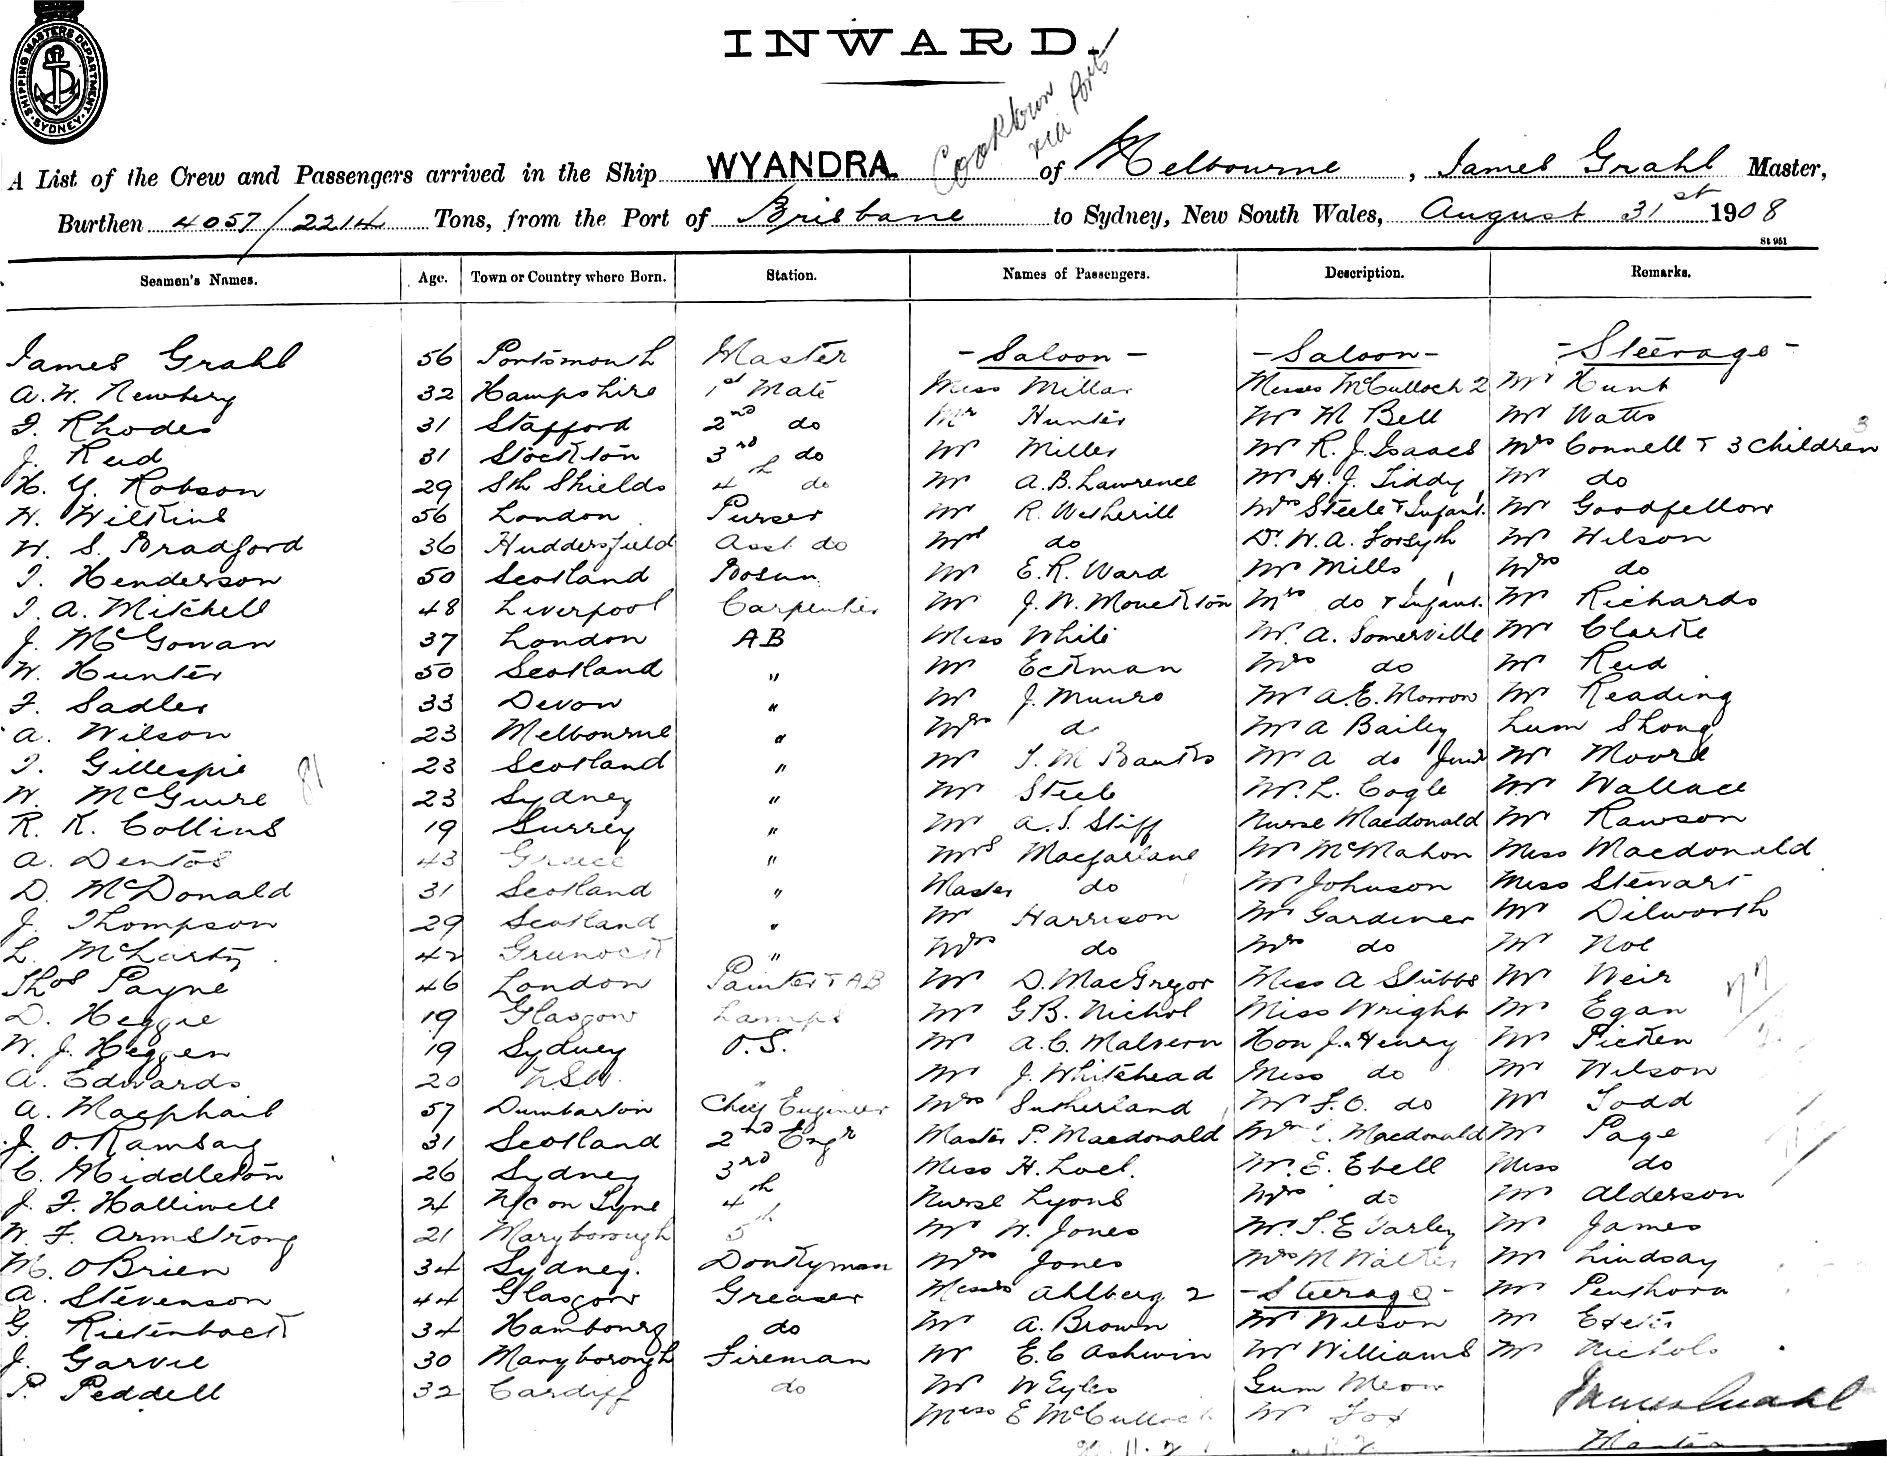 SHIPPING MASTERS DEPARTMENT
SYDNEY
INWARD.
Cooktown
via Ports
A List of the Crew and Passengers arrived in the Ship WYANDRA of Melbourne, James Grahl Master,
Burthen 4057/2214 Tons, from the Port of Brisbane to Sydney, New South Wales, August 31st 1908
St 951
Seamen's Names. Age. Town or Country where Born. Station. Names of Passengers. Description. Remarks.
James Grahl 56 Portsmouth Master - Saloon - - Saloon - - Steerage -
A. W. Newbery 32 Hampshire 1st Mate Miss Millar Misses McCulloch 2 Mr Hunt
T. Rhodes 31 Stafford 2nd do Mr Hunter Mr M Bell Mr Watts
J. Reid 31 Stockton 3rd do Mr Miller Mr R. J. Isaacs Mrs Connell & 3 Children 3
H. Y. Robson 29 Sth Shields 4th do Mr A. B. Lawrence Mr H. J. Tiddy Mr do
H. Wilkins 56 London Purser Mr R. Wetherill Mrs Steele & Infant. 1 Mr Goodfellow
W. S. Bradford 36 Huddersfield Asst do Mrs do Dr. W. A. Forsyth Mr Wilson
T. Henderson 50 Scotland Bosun Mr E. R. Ward Mr Mills Mrs do
T. A. Mitchell 48 Liverpool Carpenter Mr J. W. Monckton Mrs do & Infant. 1 Mr Richards
J. McGowan 37 London AB Miss White Mr. A. Somerville Mr Clarke
W. Hunter 50 Scotland " Mr Eckman Mrs do Mr Reid
F. Sadler 33 Devon " Mr J. Munro Mr A. E. Morron Mr Reading
A. Wilson 23 Melbourne " Mrs d Mr A Bailey Lum Shong
T. Gillespie 23 Scotland " Mr T. M Banks Mr A do Junr Mr Moore
W. McGuire 23 Sydney " Mr Steele Mr. L. Cogle Mr Wallace
R. K. Collins 19 Surrey " Mr A. S. Stiff Nurse Macdonald Mr Rawson
A. Dentos 43 Greece " Mrs Macfarlane Mr McMahon Miss Macdonald
D. McDonald 31 Scotland " Master do Mr Johnson Miss Stewart
J. Thompson 29 Scotland " Mr Harrison Mr Gardiner Mr Dilworth
L. McLarty 42 Grenock " Mrs do Mrs do Mr Noe
Thos Payne 46 London Painter & AB Mr D. MacGregor Miss A Stubbs Mr Weir
D. Heggie 19 Glasgow Lamps Mr G B. Nichol Miss Wright Mr Egan
W. J. Heggen 19 Sydney O.S. Mr A. C. Malvern Hon J. Henry Mr Picken
A. Edwards 20 NSW. " Mr J. Whitehead Miss do Mr Wilson
A. Macphail 57 Dumbarton Chief Engineer Mrs Sutherland Mr F. O. do Mr Todd
J. O. Ramsay 31 Scotland 2nd Engr Master P. Macdonald Mrs Macdonald Mr Page
C. Middleton 26 Sydney 3rd Miss H. Loel. Mr. E. Ebell Miss do
J. F. Halliwell 24 N/c on Tyne 4th Nurse Lyons Mrs do Mr Alderson
W. F. Armstrong 21 Maryborough 5th Mr W. Jones Mr. S. E Varley Mr James
M. OBrien 34 Sydney. Donkyman Mrs Jones Mrs M Walter Mr Lindsay
A. Stevenson 44 Glasgow Greaser Misses Ahlberg 2 - Steerage - Mr Penthora
G. Rietenback 34 Hambourg do Mr A. Brown Mr Wilson Mr
J. Garvie 30 Maryborough Fireman Mr E. C Ashwin Mr Williams Mr Nichols
P. Peddell 32 Cardiff do Mr W Eyles Gum Meow James Grahl
Miss E McCulloch Mr Fox Master